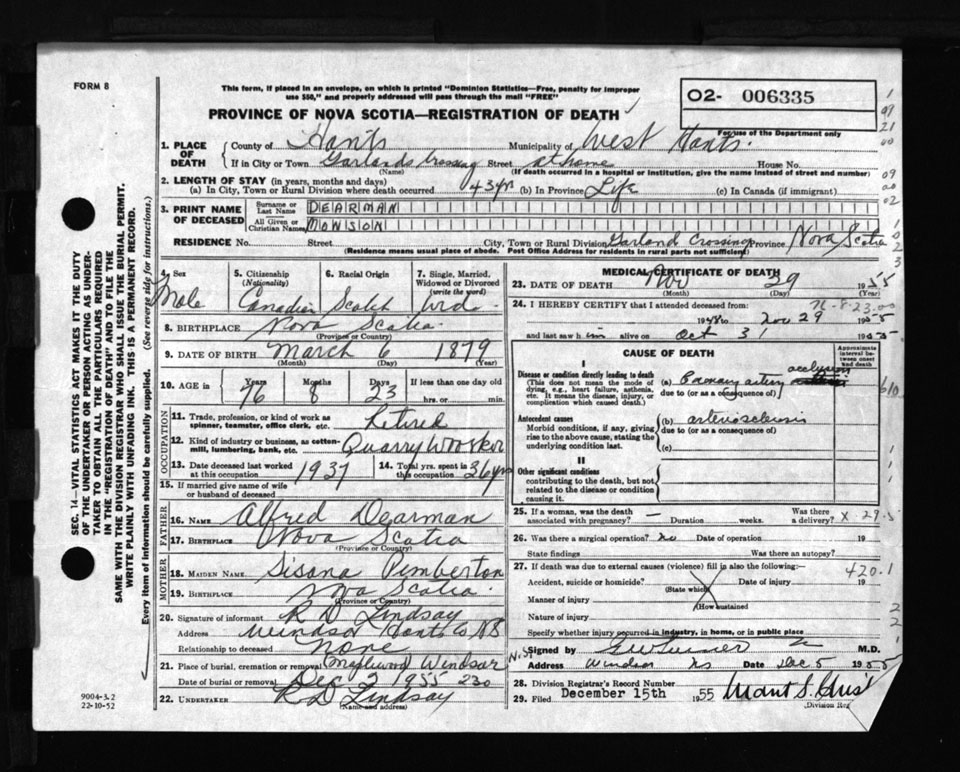 FORM 8
This form, if placed in an envelope, on which is printed "Dominion Statistics—Free, penalty for improper
use $50," and properly addressed will pass through the mail "FREE"
PROVINCE OF NOVA SCOTIA—REGISTRATION OF DEATH
02- 006335
For use of the Department only
SEC. 14—VITAL STATISTICS ACT MAKES IT THE DUTY
OF THE UNDERTAKER OR PERSON ACTING AS UNDER-
TAKER TO OBTAIN ALL THE PARTICULARS REQUIRED
IN THE "REGISTRATION OF DEATH" AND TO FILE THE
SAME WITH THE DIVISION REGISTRAR WHO SHALL ISSUE THE BURIAL PERMIT.
WRITE PLAINLY WITH UNFADING INK. THIS IS A PERMANENT RECORD.
Every item of information should be carefully supplied. (See reverse side for instructions.)
1. PLACE OF DEATH
County of Hants Municipality of West Hants.
If in City or Town Garlands Crossing Street at home House No.
(Name) (If death occurred in a hospital or institution, give the name instead of street and number)
2. LENGTH OF STAY (in years, months and days)
(a) In City, Town or Rural Division where death occurred 43 yrs (b) In Province Life (c) In Canada (if immigrant)
3. PRINT NAME OF DECEASED
Surname or Last Name DEARMAN
All Given or Christian Names MOWSON
RESIDENCE No. Street City, Town or Rural Division Garland Crossing Province Nova Scotia
(Residence means usual place of abode. Post Office Address for residents in rural parts not sufficient)
4. Sex Male
5. Citizenship (Nationality) Canadian
6. Racial Origin Scotch
7. Single, Married, Widowed or Divorced (write the word) Wid
8. BIRTHPLACE Nova Scotia
(Province or Country)
9. DATE OF BIRTH March 6 1879
(Month) (Day) (Year)
10. AGE in Years 76 Months 8 Days 23 If less than one day old
hrs. or min.
OCCUPATION
11. Trade, profession, or kind of work as
spinner, teamster, office clerk, etc. Retired
12. Kind of industry or business, as cotton-
mill, lumbering, bank, etc. Quarry Worker
13. Date deceased last worked
at this occupation 1937
14. Total yrs. spent in
this occupation 36 yrs
15. If married give name of wife
or husband of deceased
FATHER
16. NAME Alfred Dearman
17. BIRTHPLACE Nova Scotia
(Province or Country)
MOTHER
18. MAIDEN NAME Sisana Pemberton
19. BIRTHPLACE Nova Scotia
(Province or Country)
20. Signature of informant R D Lindsay
Address Windsor Hants Co NS
Relationship to deceased None
21. Place of burial, cremation or removal Windsor
Date of burial or removal Dec 2 1955 230
22. UNDERTAKER R D Lindsay
(Name and address)
9004-3.2
22-10-52
MEDICAL CERTIFICATE OF DEATH
23. DATE OF DEATH Nov 29 1955
(Month) (Day) (Year)
76-8-23
24. I HEREBY CERTIFY that I attended deceased from:
1948 to Nov 29 1955
and last saw him alive on Oct 31 1955
CAUSE OF DEATH
Approximate interval between onset and death
I
Disease or condition directly leading to death
(This does not mean the mode of
dying, e.g., heart failure, asthenia,
etc. It means the disease, injury, or
complication which caused death.)
(a) Coronary artery occlusion
due to (or as a consequence of)
Antecedent causes
Morbid conditions, if any, giving
rise to the above cause, stating the
underlying condition last.
(b) arteriosclerosis
due to (or as a consequence of)
(c)
II
Other significant conditions
contributing to the death, but not
related to the disease or condition
causing it.
25. If a woman, was the death
associated with pregnancy? — Duration weeks. Was there
a delivery? x-29-5
26. Was there a surgical operation? no Date of operation 19
State findings Was there an autopsy?
27. If death was due to external causes (violence) fill in also the following:— 420.1
Accident, suicide or homicide? Date of injury 19
(State which)
Manner of injury
(How sustained
Nature of injury
Specify whether injury occurred in industry, in home, or in public place
Signed by M.D.
Address Windsor NS Date Dec 5 1955
28. Division Registrar's Record Number
29. Filed December 15th 1955
Division Reg